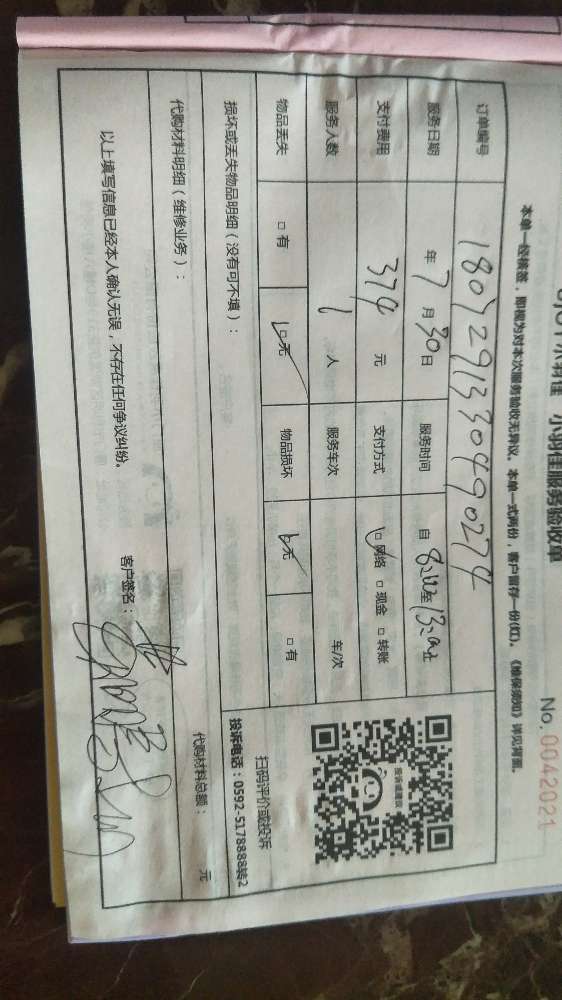 小羽佳 小羽佳服务验收单
No. 0042021
本单一经核签，即视为对本次服务验收无异议。本单一式两份，客户留存一份(红)。《检保须知》详见背面。
订单编号 1807291330490274
服务日期 年 7 月 30 日 服务时间 自 至
支付费用 374 元 支付方式 □网络 □现金 □转账
服务人数 1 人 服务车次 车/次
物品丢失 □有 □无 物品损坏 □无 □有
损坏或丢失物品明细（没有可不填）：
扫码评价或投诉
投诉电话：0592-5178888转2
代购材料明细（维修业务）： 代购材料总额： 元
以上填写信息已经本人确认无误，不存在任何争议纠纷。
客户签名：